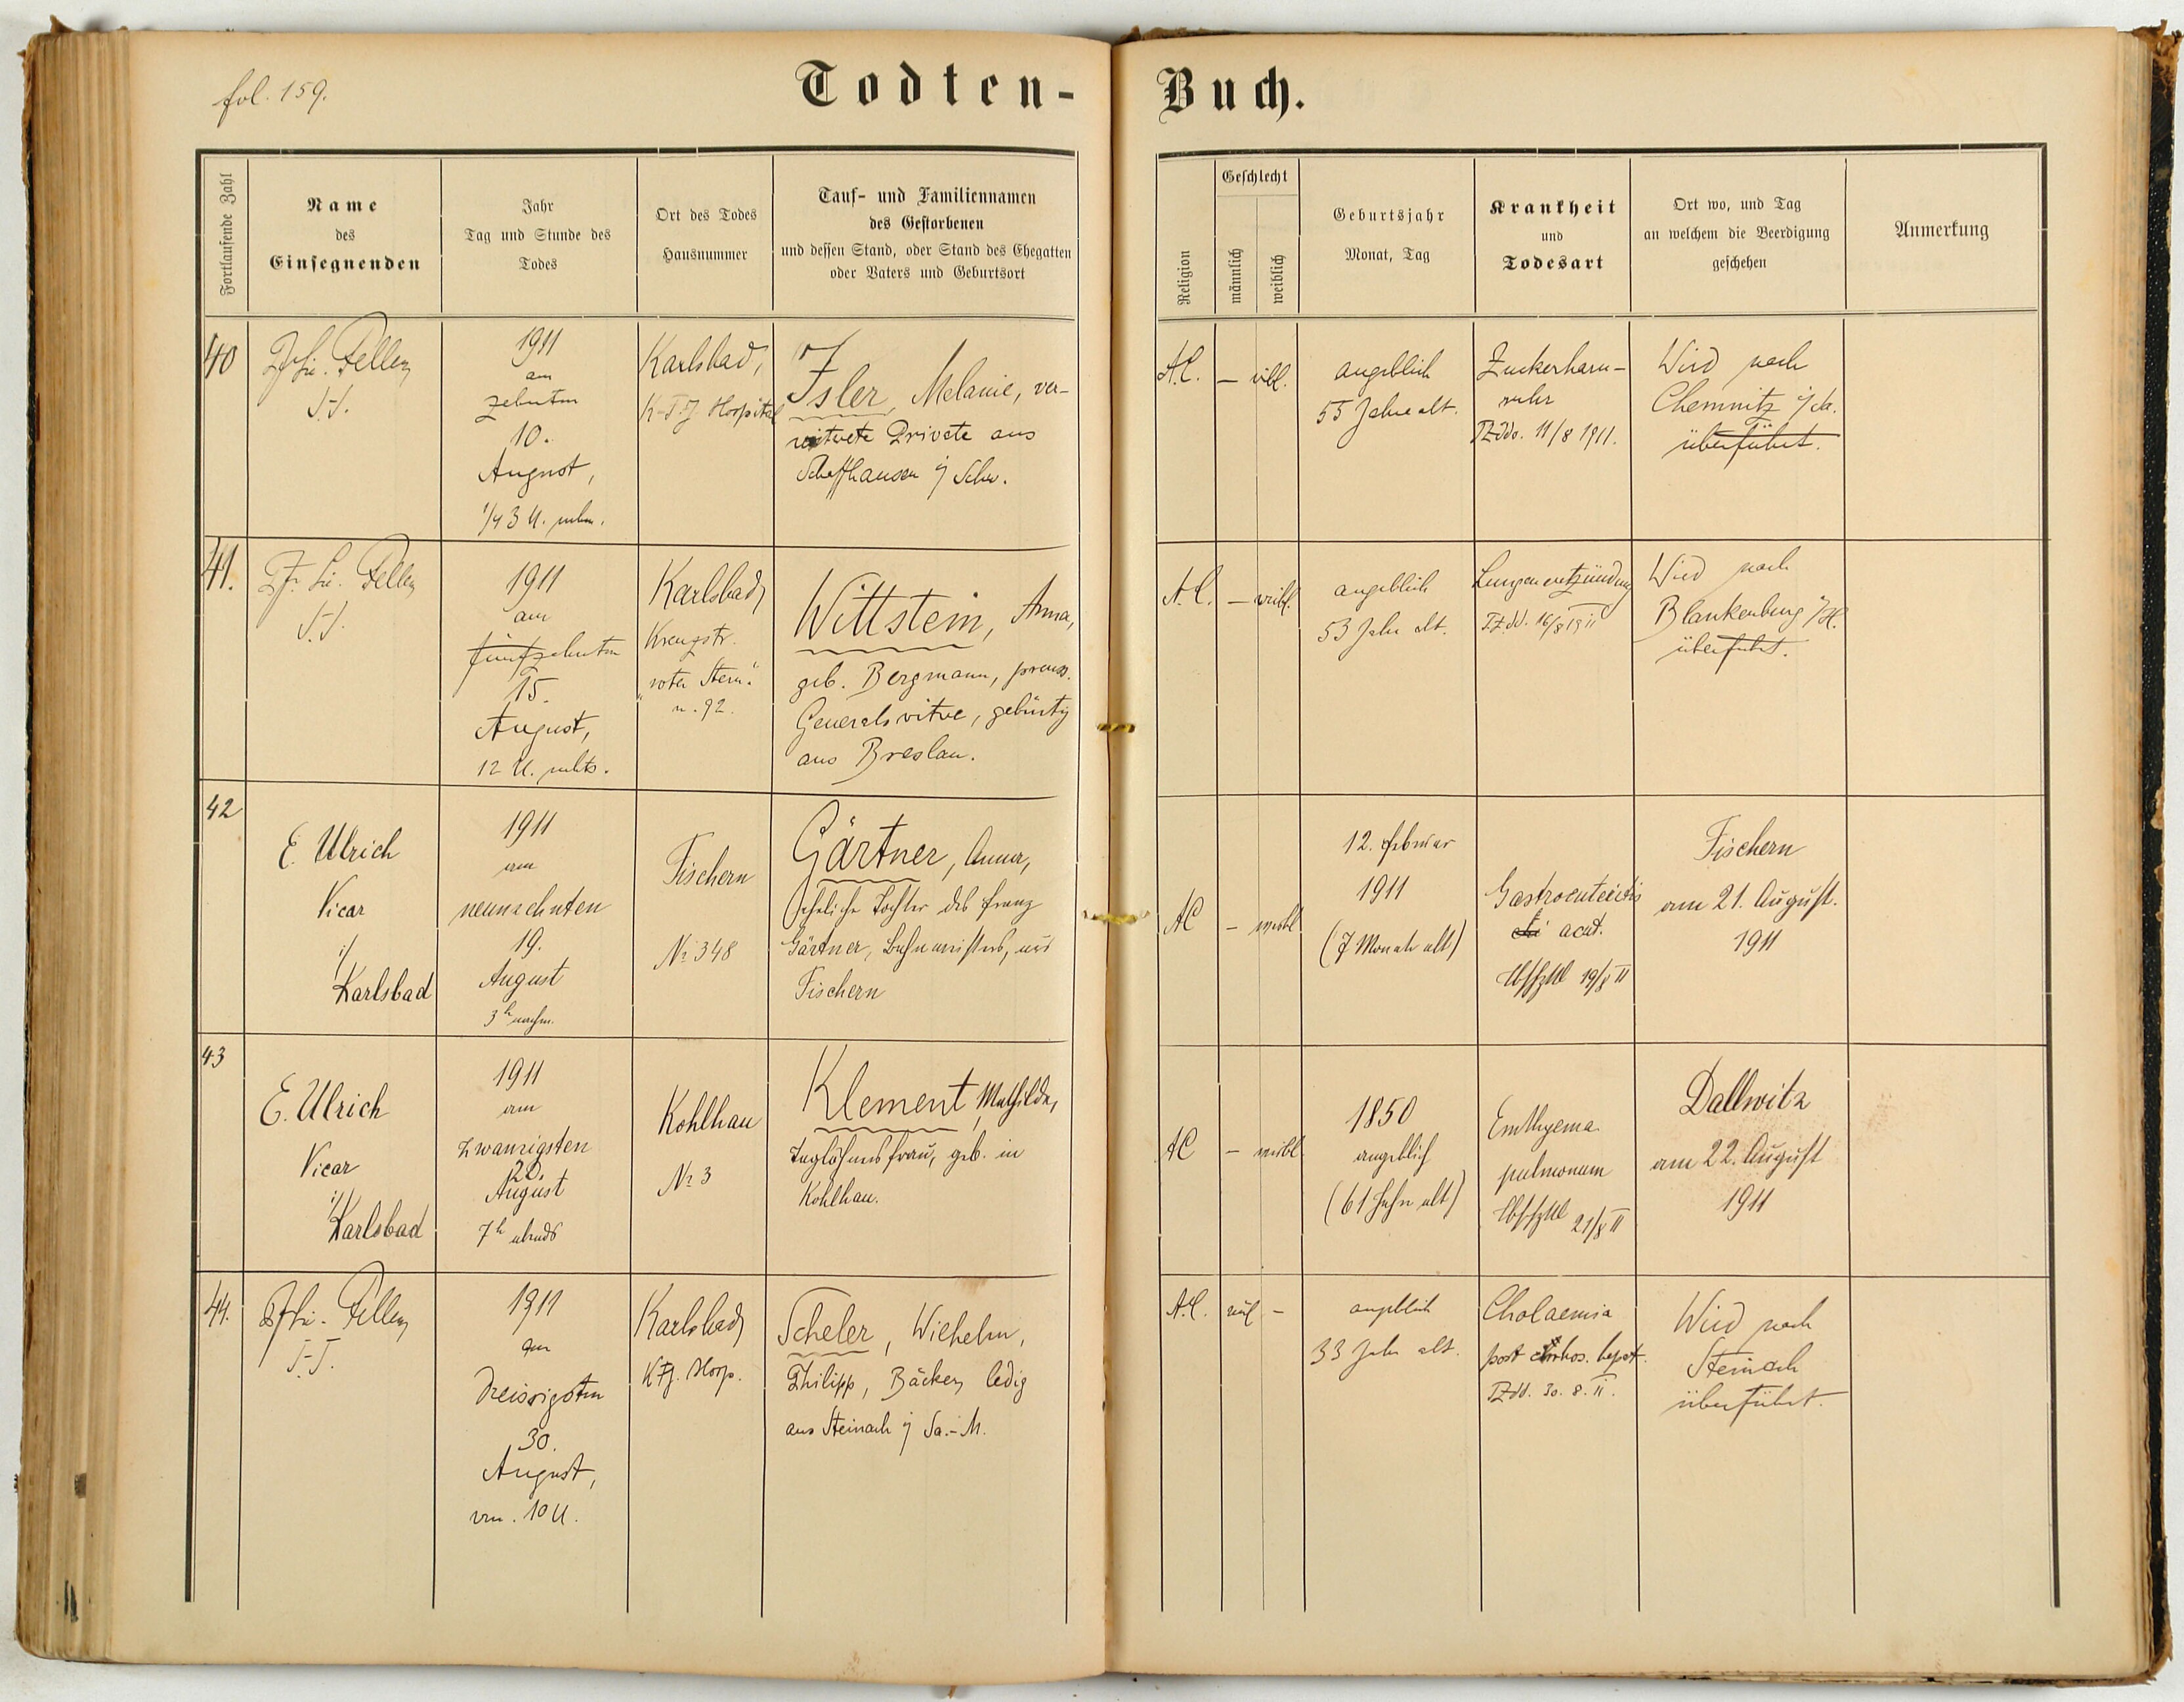 fol. 159.
Todten-Buch.
Fortlaufende Zahl
Name
des
Einsegnenden
Jahr
Tag und Stunde des
Todes
Ort des Todes
Hausnummer
Tauf- und Familiennamen
des Gestorbenen
und dessen Stand, oder Stand des Ehegatten
oder Vaters und Geburtsort
Religion
Geschlecht
männlich
weiblich
Geburtsjahr
Monat, Tag
Krankheit
und
Todesart
Ort wo, und Tag
an welchem die Beerdigung
geschehen
Anmerkung
40
1911
am
zehnten
10.
August,
1/4 3 U. nchm.
Karlsbad,
K-F.J. Hospital
Isler, Melanie, ver-
witwete Private aus
Schaffhausen i/ Schw.
A.C.
— wbl.
angeblich
55 Jahre alt.
Zuckerharn-
ruhr
TZddo. 11/8 1911.
Wird nach
Chemnitz i/Sa.
überführt.
41.
1911
am
fünfzehnten
15.
August,
12 U. nchts.
Karlsbad,
Kreuzstr.
"roter Stern"
n. 92.
Wittstein, Anna,
geb. Bergmann, preuss.
Generalswitwe, gebürtig
aus Breslau.
A.C.
— weibl.
angeblich
53 Jahre alt.
Lungenentzündung
TZdd. 16/8 1911
Wird nach
Blankenburg i/H.
überführt.
42
E. Ulrich
Vicar
i/
Karlsbad
1911
am
neunzehnten
19.
August
3h nachm.
Fischern
№ 348
Gärtner, Anna,
eheliche Tochter des Franz
Gärtner, Bahnmeisters, aus
Fischern
AC
— weibl
12. Februar
1911
(7 Monate alt)
Gastroenteritis
acut.
19/8 11
Fischern
am 21. August.
1911
43
E. Ulrich
Vicar
i/
Karlsbad
1911
am
zwanzigsten
20.
August
7h abends
Kohlhau
№ 3
Klement, Mathilde,
Taglöhnersfrau, geb. in
Kohlhau.
AC
— weibl
1850
angeblich
(61 Jahre alt)
Emthyema
pulmonum
21/8 11
Dallwitz
am 22. August
1911
44.
1911
am
dreissigsten
30.
August,
vm. 10 U.
Karlsbad,
KFJ. Hosp.
Scheler, Wilhelm,
Philipp, Bäcker, ledig
aus Steinach i/ Sa.-M.
A.C.
ml —
angeblich
33 Jahre alt.
Cholaemia
post cirrhos. hepat.
TZdd. 30. 8. 11.
Wird nach
Steinach
überführt.